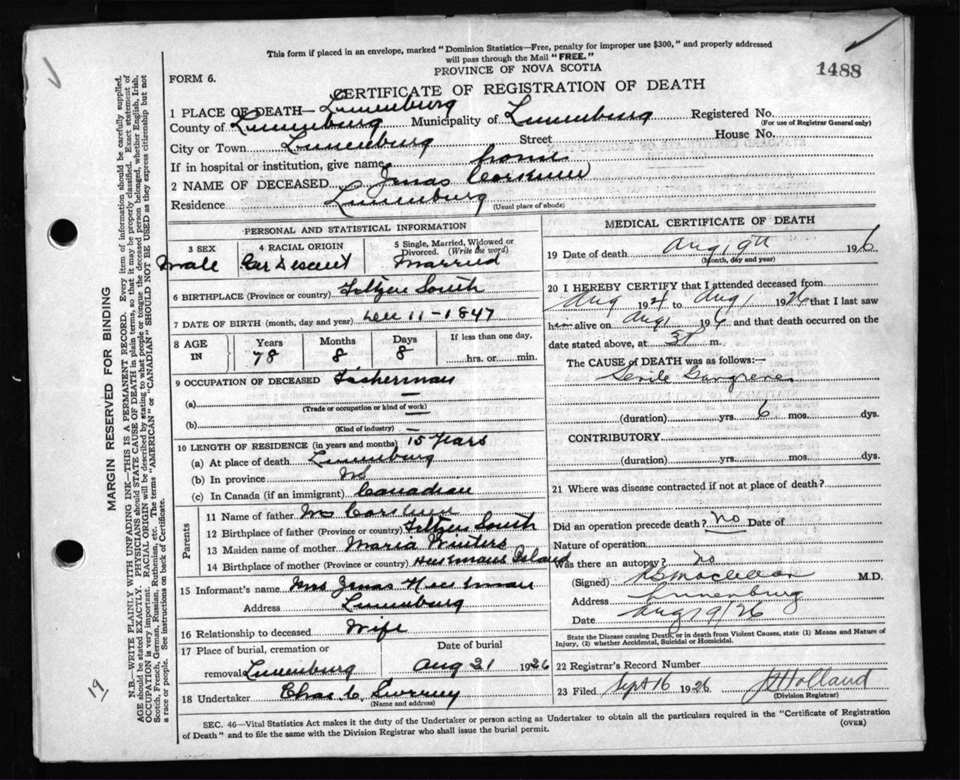 This form if placed in an envelope, marked "Dominion Statistics—Free, penalty for improper use $300," and properly addressed
will pass through the Mail "FREE."
PROVINCE OF NOVA SCOTIA
1488
FORM 6.
CERTIFICATE OF REGISTRATION OF DEATH
1 PLACE OF DEATH— Lunenburg
County of Lunenburg Municipality of Lunenburg Registered No.
(For use of Registrar General only)
City or Town Lunenburg Street House No.
If in hospital or institution, give name home
2 NAME OF DECEASED
Residence Lunenburg
(Usual place of abode)
PERSONAL AND STATISTICAL INFORMATION
3 SEX
Male
4 RACIAL ORIGIN
Descent
5 Single, Married, Widowed or
Divorced. (Write the word)
Married
6 BIRTHPLACE (Province or country) Feltzen South
7 DATE OF BIRTH (month, day and year) Dec 11-1847
8 AGE
IN
Years
78
Months
8
Days
8
If less than one day,
hrs. or min.
9 OCCUPATION OF DECEASED Fisherman
(a) —
(Trade or occupation or kind of work)
(b) —
(Kind of industry)
10 LENGTH OF RESIDENCE (in years and months) 15 Years
(a) At place of death Lunenburg
(b) In province NS
(c) In Canada (if an immigrant) Canadian
Parents
11 Name of father
12 Birthplace of father (Province or country) Feltzen South
13 Maiden name of mother Maria Winters
14 Birthplace of mother (Province or country) Island
15 Informant's name Mrs
Address Lunenburg
16 Relationship to deceased Wife
17 Place of burial, cremation or
removal Lunenburg
Date of burial
Aug 21 1926
18 Undertaker Chas
(Name and address)
MEDICAL CERTIFICATE OF DEATH
19 Date of death Aug 19th 1926
(Month, day and year)
20 I HEREBY CERTIFY that I attended deceased from
Aug 192 to Aug 1926 that I last saw
him alive on Aug 1926 and that death occurred on the
date stated above, at m.
The CAUSE of DEATH was as follows:—
Senile Gangrene
(duration) yrs. 6 mos. dys.
CONTRIBUTORY
(duration) yrs. mos. dys.
21 Where was disease contracted if not at place of death?
Did an operation precede death? No Date of
Nature of operation
Was there an autopsy? No
(Signed) M.D.
Address Lunenburg
Date Aug 19/26
State the Disease causing Death, or in death from Violent Causes, state (1) Means and Nature of
Injury, (2) whether Accidental, Suicidal or Homicidal.
22 Registrar's Record Number
23 Filed Sept 16 1926 Holland
(Division Registrar)
SEC. 46—Vital Statistics Act makes it the duty of the Undertaker or person acting as Undertaker to obtain all the particulars required in the "Certificate of Registration
of Death" and to file the same with the Division Registrar who shall issue the burial permit.
(OVER)
MARGIN RESERVED FOR BINDING
N.B.—WRITE PLAINLY WITH UNFADING INK—THIS IS A PERMANENT RECORD. Every item of information should be carefully supplied.
AGE should be stated EXACTLY. PHYSICIANS should STATE CAUSE OF DEATH in plain terms, so that it may be properly classified. Exact statement of
OCCUPATION is very important. RACIAL ORIGIN will be described by stating to what people or tongue the deceased person belonged, whether English, Irish,
Scotch, French, German, Russian, Ruthenian, etc. The terms "AMERICAN" or "CANADIAN" SHOULD NOT BE USED as they express citizenship but not
a race or people. See instructions on back of Certificate.
19